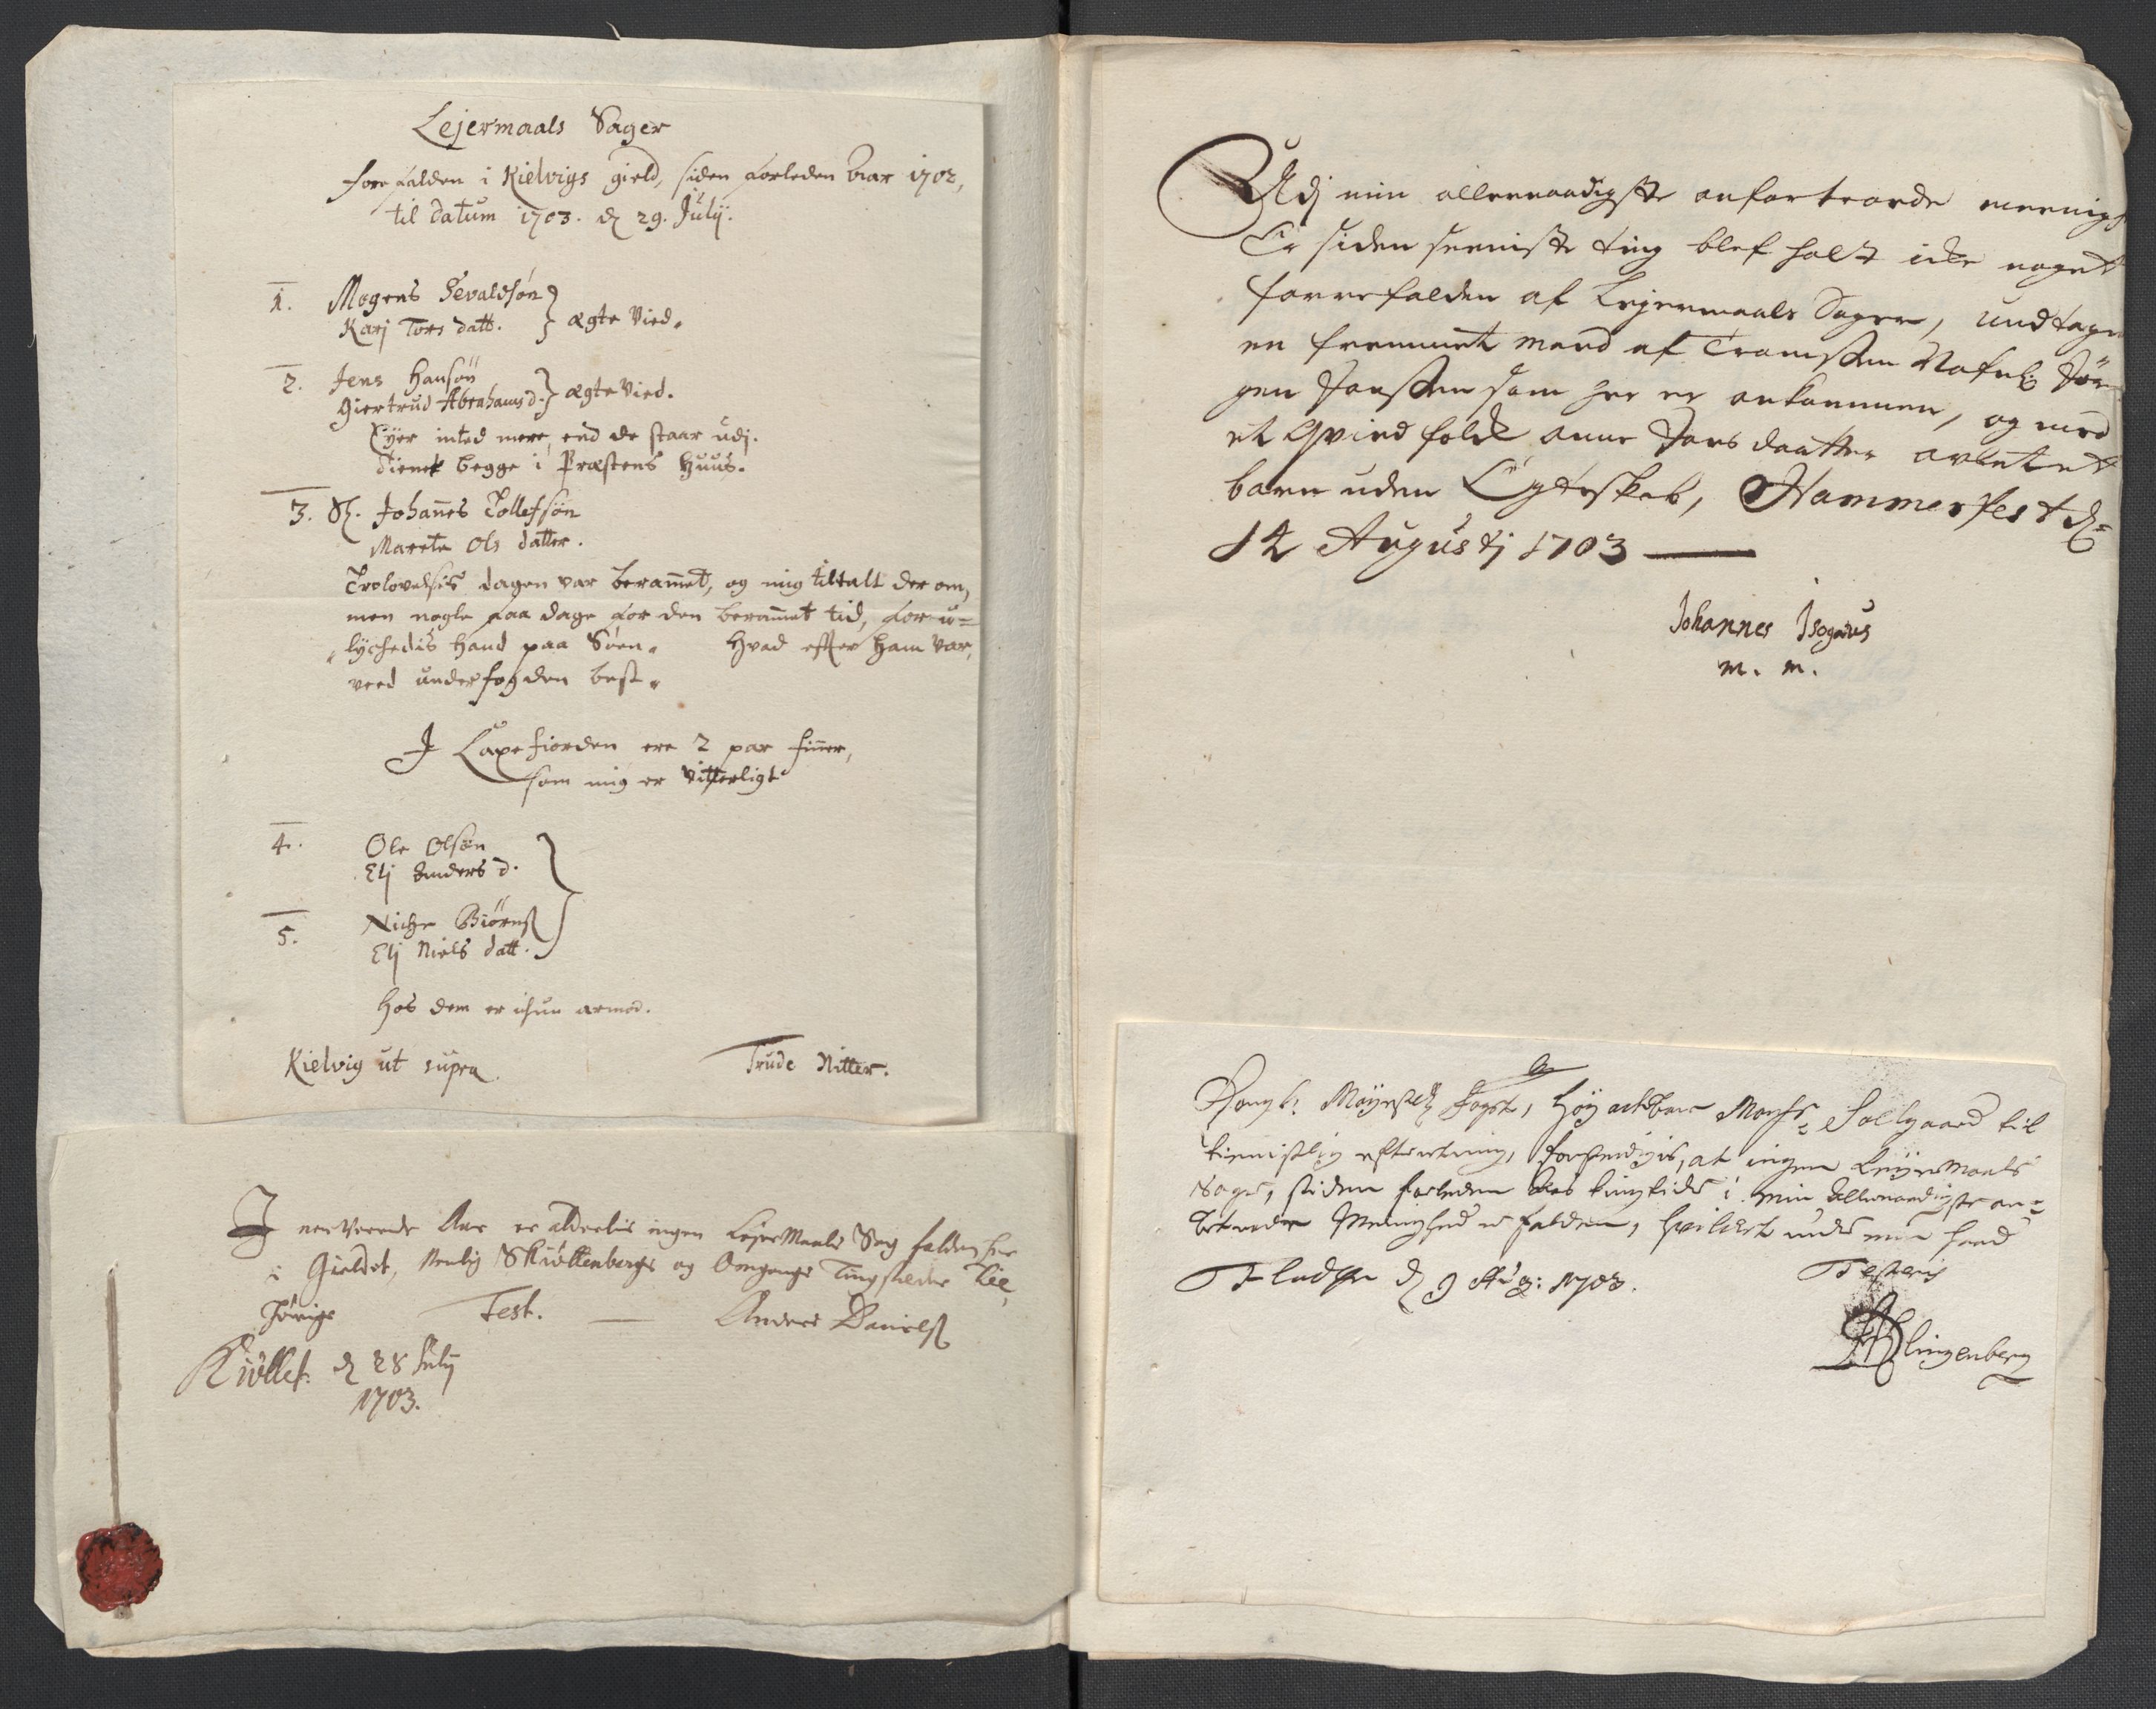 Lejermaals Sager
forefalden i Kielvigs gield, siden forleden Aar 1702,
til datum 1703. d. 29. Julij.
1. Mogens Sevaldsøn
Karj Tors datt. } ægte Vied.
2. Jens Hansøn
Giertrud Abrahams d. } ægte Vied.
Eyer inted mere, end de staar udj.
dienet begge i Præstens Huus.
3. Sl. Johannes Tollefsøn
Marete Ols datter.
Trolovelses dagen var berammet, og mig tiltalt der om,
men nogle faa dage for den berammet tid, for u=
lyckedis hand paa Søen. Hvad efter ham var,
veed underfogden best.
I Laxefiorden ere 2 par finner,
som mig er vitterligt
4. Ole Olsøn
Elj Anders d.
5. Niche Biørns
Elj Niels datt.
Hos dem er ichun armod.
Kielvig ut supra. Trude Nitter.
I nerverende Aar er alderlis ingen LejerMaals Sag falden her
i Gieldet, Nemlig Skiøttenbergs og Omgangs Tingsteder
Test. Anders Daniels
Kiøllef. d 28 Julij
1703.
Udj min allernaadigste anfortroede meenigh
Er siden seeniste ting blef holt icke noget
forrefalden af Leyermaals Sager, undtagen
en fremmet mand af Tromsøen Nafnl: Jør=
gen som her er ankommen, og med
et Qvindfolck anne Jens daatter avlet et
barn uden Ægteskab, Hammerfest d=
14 Augustj 1703
Johannes Isogæus
m. m.
Kongl: Mayests Fogt, Høy actbare Monsr Sollgaard til
tienistlig efterretning, forstendigis, at ingen LeyerMaals
Sager, siden forleden Aars tingtider i min Allernaadigste an=
betroede Menighed er falden, hvilcket under min haand
Testeris
d 9 Aug: 1703.
Klingenberg